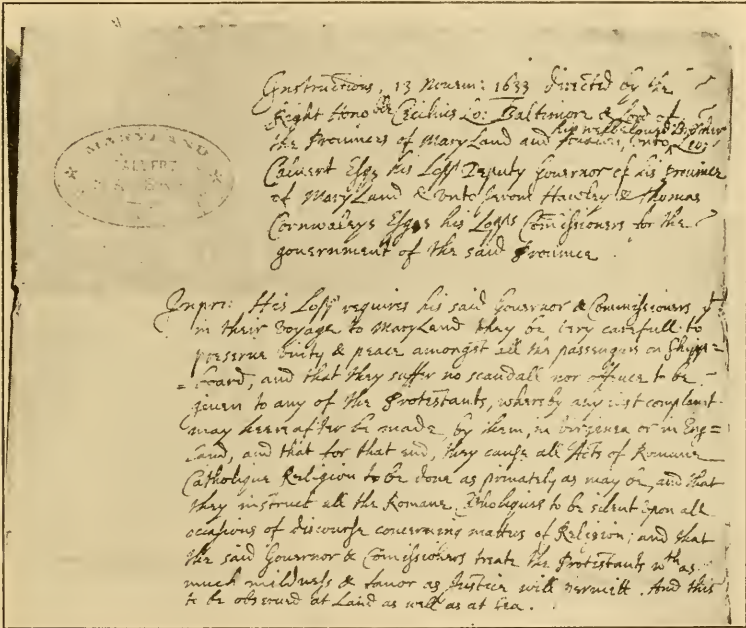 Instructions, 13 Novem: 1633 directed by the
Right Hono ble Cecilius Lo: Baltimore & Lord of
the Provinces of Mary Land and Avalon, unto his well beloved Brother Leo:
Calvert Esqr his Lopps Deputy Governor of his province
of Mary Land & unto Jerom Hawley & Thomas
Cornwaleys Esqrs his Lopps Comissioners for the
government of the said Province.
MARYLAND
CALVERT
Inpri: His Lopp requires his said Governor & Commissioners yt
in their voyage to Mary Land they be very carefull to
preserve unity & peace amongst all the passengers on Shipp=
=board, and that they suffer no scandall nor offence to be
given to any of the Protestants, whereby any just complaint
may heereafter be made, by them, in Virginea or in Eng=
=land, and that for that end, they cause all Acts of Romane
Catholique Religion to be done as privately as may be, and that
they instruct all the Romane Catholiques to be silent upon all
occasions of discourse concerning matters of Religion; and that
the said Governor & Comissioners treate the Protestants wth as
much mildness & favor as Justice will permitt. And this
to be observed at Land as well as at Sea.